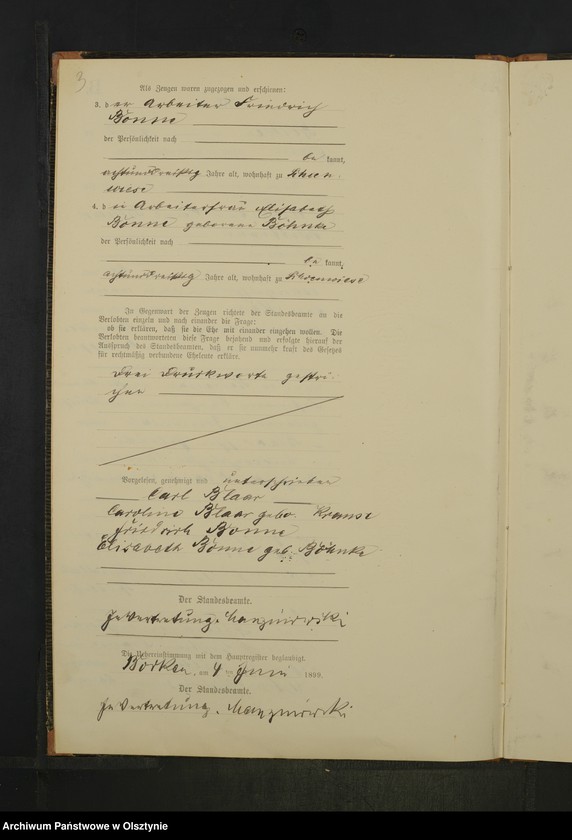 3
Als Zeugen waren zugezogen und erschienen:
3. der Arbeiter Friedrich
Bönne
der Persönlichkeit nach
be kannt,
achtunddreißig Jahre alt, wohnhaft zu
wiese
4. die Arbeiterfrau Elisabeth
Bönne geborene Böhnke
der Persönlichkeit nach
be kannt,
achtunddreißig Jahre alt, wohnhaft zu
In Gegenwart der Zeugen richtete der Standesbeamte an die
Verlobten einzeln und nach einander die Frage:
ob sie erklären, daß sie die Ehe mit einander eingehen wollen. Die
Verlobten beantworteten diese Frage bejahend und erfolgte hierauf der
Ausspruch des Standesbeamten, daß er sie nunmehr kraft des Gesetzes
für rechtmäßig verbundene Eheleute erkläre.
Drei Druckworte gestri-
chen
Vorgelesen, genehmigt und unterschrieben
Carl Blaar
Caroline Blaar geb. Krause
Friedrich Bonne
Elisabeth Bönne geb. Böhnke
Der Standesbeamte.
In Vertretung.
Die Uebereinstimmung mit dem Hauptregister beglaubigt.
Borken, am 4 ten Juni 1899.
Der Standesbeamte.
In Vertretung.
Archiwum Państwowe w Olsztynie